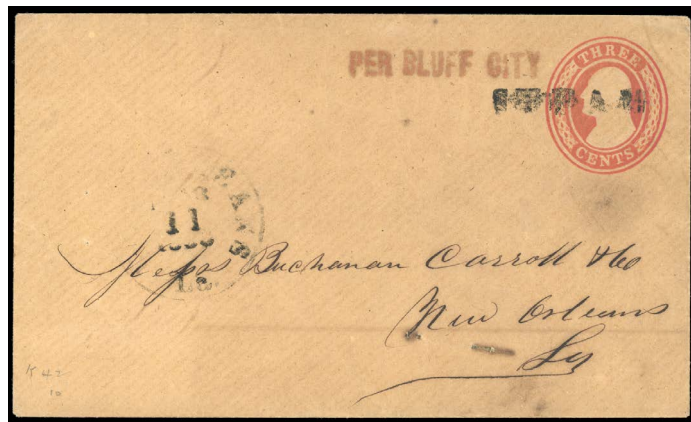 PER BLUFF CITY
THREE
CENTS
11
La.
Messrs Buchanan Carroll & Co
New Orleans
La
K 43
10